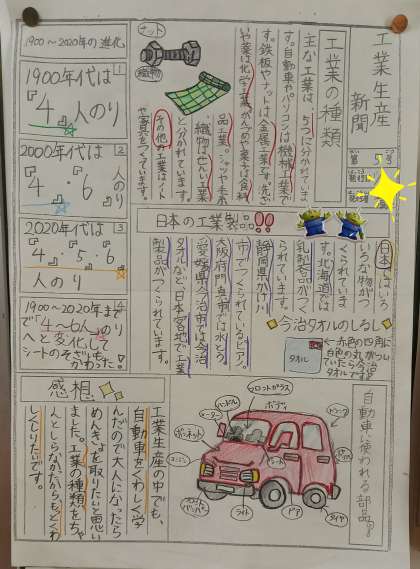 工業生産新聞
第5号
工業の種類
主な工業は、5つに分かれていま
す。自動車やパソコンは機械工業で
す。鉄板やナットは金属工業です。洗ざ
いや薬は化学工業、かんづめや菓子は食料
品工業。シャツや毛布、
織物は、せんい工業
と分かれています。
その他の工業はノート
や家具をつくっています。
ナット
織物
1900〜2020年の進化
1
1900年代は
『4』人のり
2
2000年代は
『4』『6』人のり
3
2020年代は
『4』『5』『6』
人のり
4
1900〜2020年まで
で『4〜6人』のり
へと変化して
シートのそざいも
かわった!
日本の工業製品!!
日本ではいろ
いろな物がつ
くられていま
す。北海道では
乳製品がつく
られています。
静岡県かけ川
市でつくられているピアノ。
大阪府門真市では水とう
愛媛県今治市では今治
タオルなど、日本各地で工業
製品がつくられています。
今治タオルのしるし
←赤色の四角に
白色の丸がつい
ていたら今治タオル
です!
タオル
自動車に使われる部品。
フロントガラス
ボディ
ハンドル
ミーター
ボンネット
エンジン
バンパー
ライト
ドア
タイヤ
シート
感想
工業生産の中でも、
自動車をくわしく学
んだので大人になったら
めんきょを取りたいと思い
ました。工業の種類をちゃ
んとしらなかったから、もっとくわ
しくしりたいです。